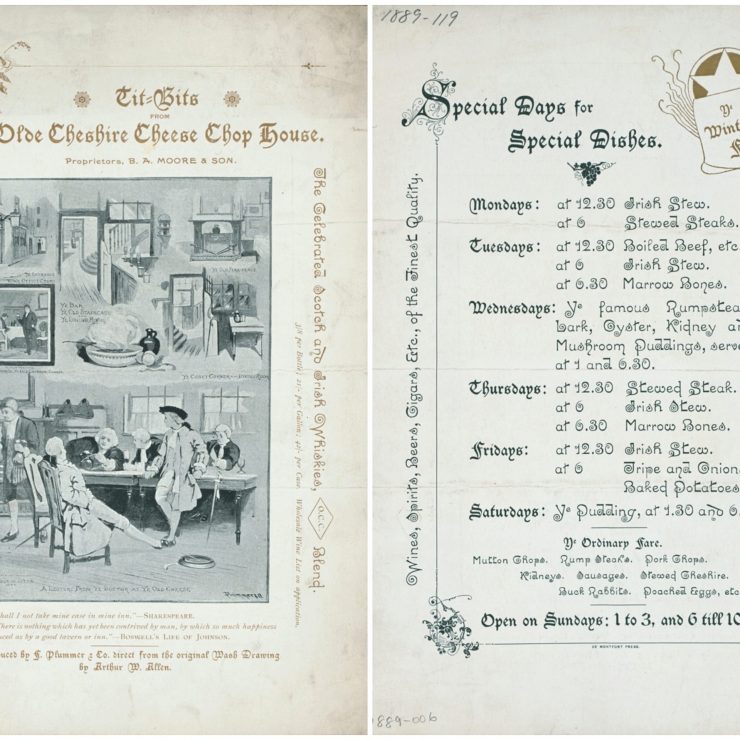 Tit=Bits
FROM
Olde Cheshire Cheese Chop House.
Proprietors, B. A. MOORE & SON.
The Celebrated Scotch and Irish Whiskies, O.C.C. Blend.
per Bottle; 21/- per Gallon; 42/- per Case. Wholesale Wine List on application.
YE BAR
YE OLD STAIRCASE
YE DINING ROOM
YE COSEY CORNER
A LECTURE FROM YE DOCTOR AT YE OLD CHEESE
PLUMMER & Co
shall I not take mine ease in mine inn."—SHAKESPEARE.
There is nothing which has yet been contrived by man, by which so much happiness
as by a good tavern or inn."—BOSWELL'S LIFE OF JOHNSON.
by F. Plummer & Co. direct from the original Wash Drawing
by Arthur W. Allen.
1889-119
Special Days for
Special Dishes.
Ye
Wines, Spirits, Beers, Cigars, Etc., of the Finest Quality.
Mondays: at 12.30 Irish Stew.
at 6 Stewed Steaks.
Tuesdays: at 12.30 Boiled Beef, etc
at 6 Irish Stew.
at 6.30 Marrow Bones.
Wednesdays: Ye famous Rumpstea
Lark, Oyster, Kidney an
Mushroom Puddings, serv
at 1 and 6.30.
Thursdays: at 12.30 Stewed Steak.
at 6 Irish Stew.
at 6.30 Marrow Bones.
Fridays: at 12.30 Irish Stew.
at 6 Tripe and Onion
Baked Potatoes
Saturdays: Ye Pudding, at 1.30 and 6
Ye Ordinary Fare.
Mutton Chops. Rump Steaks. Pork Chops.
Kidneys. Sausages. Stewed Cheshire.
Buck Rabbits. Poached Eggs, etc
Open on Sundays: 1 to 3, and 6 till 10
DE MONTFORT PRESS.
1889-006